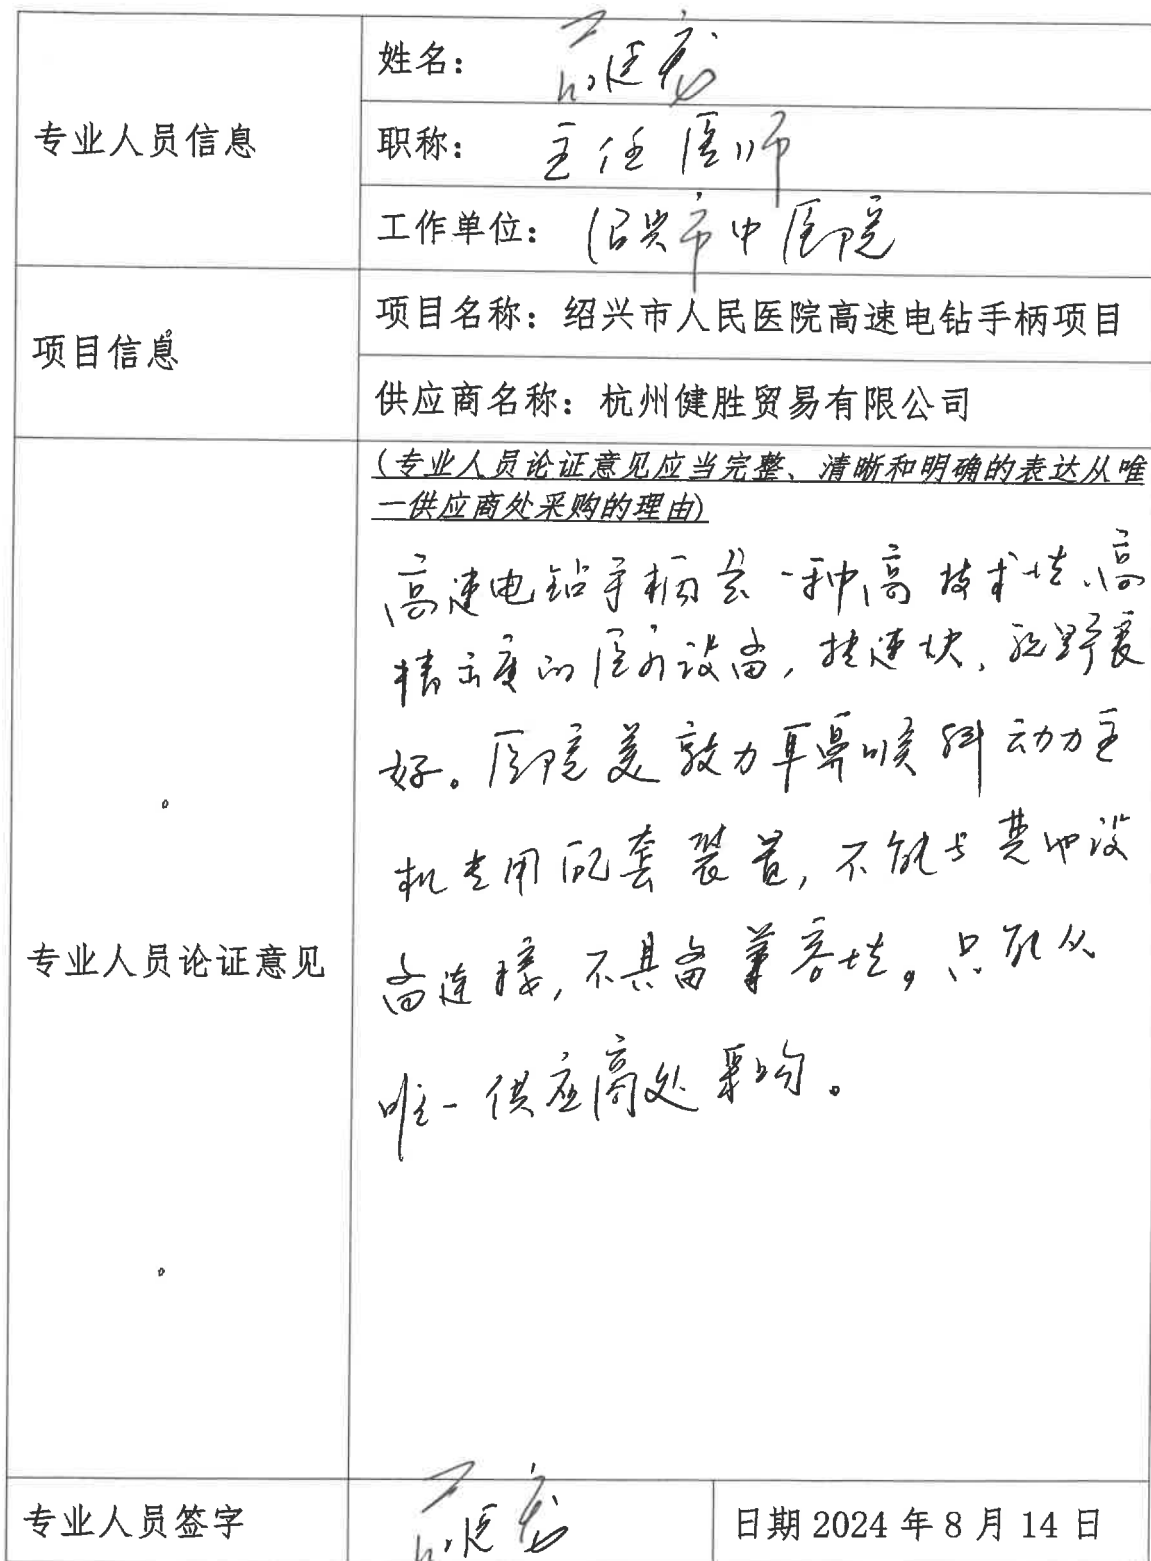 姓名：
专业人员信息
职称：主任医师
工作单位：绍兴市中医院
项目信息
项目名称：绍兴市人民医院高速电钻手柄项目
供应商名称：杭州健胜贸易有限公司
(专业人员论证意见应当完整、清晰和明确的表达从唯
一供应商处采购的理由)
高速电钻手柄是一种高技术性、高
精密度的医疗设备，转速快，视野暴
好。医院美敦力耳鼻喉科动力主
机专用配套装置，不能与其他设
备连接，不具备兼容性。只能从
唯一供应商处采购。
专业人员论证意见
专业人员签字
日期 2024 年 8 月 14 日